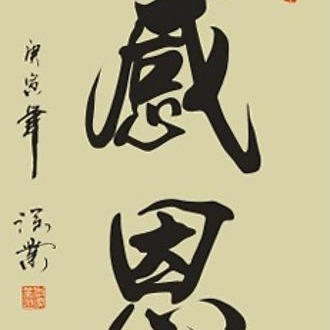 感恩
庚寅年